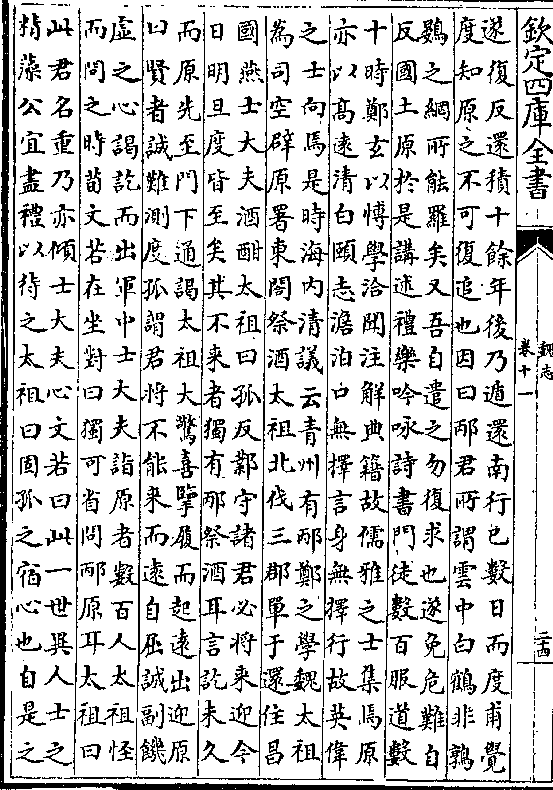 欽定四庫全書
魏志
卷十一
遂復反還積十餘年後乃遁還南行已數日而度甫覺
度知原之不可復追也因曰邴君所謂雲中白鶴非鶉
鷃之網所能羅矣又吾自遣之勿復求也遂免危難自
反國土原於是講述禮樂吟咏詩書門徒數百服道數
十時鄭玄以博學洽聞注解典籍故儒雅之士集焉原
亦以髙遠清白頤志澹泊口無擇言身無擇行故英偉
之士向焉是時海内清議云青州有邴鄭之學魏太祖
為司空辟原署東閤祭酒太祖北伐三郡單于還住昌
國燕士大夫酒酣太祖曰孤反鄴守諸君必將来迎今
日明旦度皆至矣其不来者獨有邴祭酒耳言訖未久
而原先至門下通謁太祖大驚喜擥履而起遠出迎原
曰賢者誠難測度孤謂君將不能来而遠自屈誠副饑
虛之心謁訖而出軍中士大夫詣原者數百人太祖怪
而問之時荀文若在坐對曰獨可省問邴原耳太祖曰
此君名重乃亦傾士大夫心文若曰此一世異人士之
精藻公宜盡禮以待之太祖曰固孤之宿心也自是之